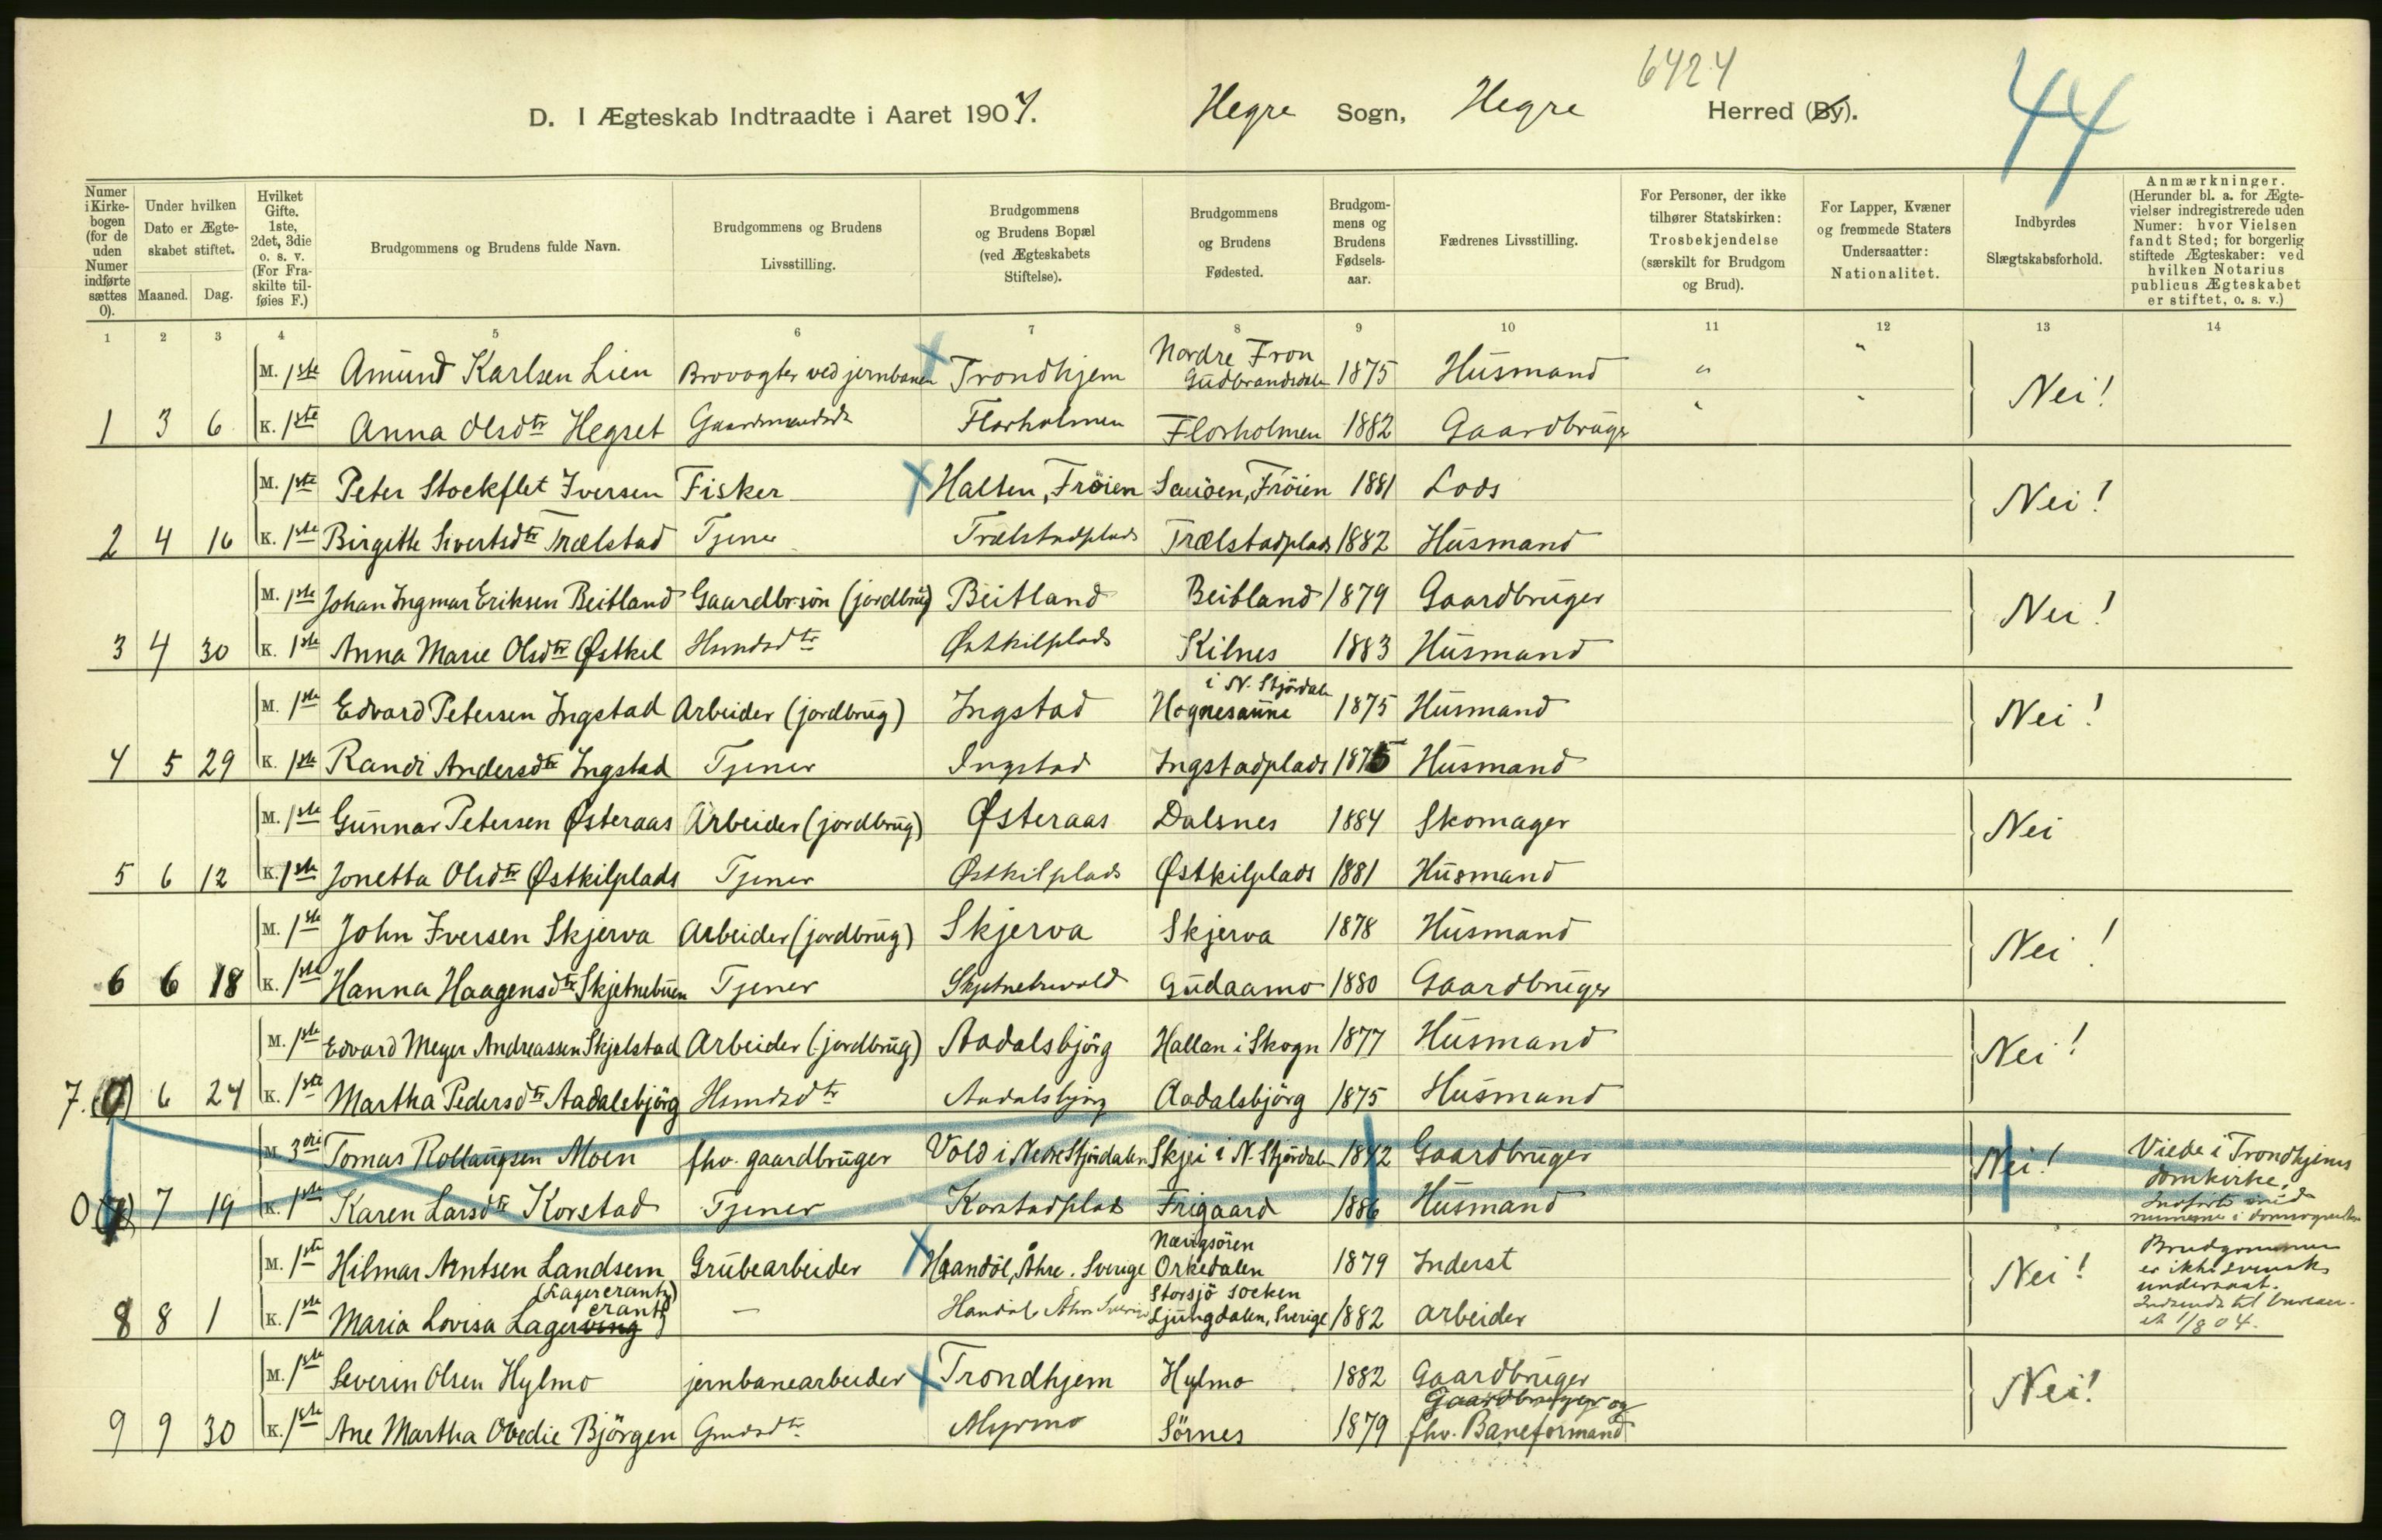 6424
44
D. I Ægteskab Indtraadte i Aaret 1907. Hegre Sogn, Hegre Herred (By).
Numer i Kirkebogen (for de uden Numer indførte sættes 0).
Under hvilken Dato er Ægteskabet stiftet.
Maaned. Dag.
Hvilket Gifte. 1ste, 2det, 3die o. s. v. (For Fraskilte tilføies F.)
Brudgommens og Brudens fulde Navn.
Brudgommens og Brudens Livsstilling.
Brudgommens og Brudens Bopæl (ved Ægteskabets Stiftelse).
Brudgommens og Brudens Fødested.
Brudgommens og Brudens Fødselsaar.
Fædrenes Livsstilling.
For Personer, der ikke tilhører Statskirken: Trosbekjendelse (særskilt for Brudgom og Brud).
For Lapper, Kvæner og fremmede Staters Undersaatter: Nationalitet.
Indbyrdes Slægtskabsforhold.
Anmærkninger. (Herunder bl. a. for Ægtevielser indregistrerede uden Numer: hvor Vielsen fandt Sted; for borgerlig stiftede Ægteskaber: ved hvilken Notarius publicus Ægteskabet er stiftet, o. s. v.)
1 2 3 4 5 6 7 8 9 10 11 12 13 14
M. 1ste Amund Karlsen Lien Brovogter ved jernbanen Trondhjem Nordre Fron Gudbrandsdalen 1875 Husmand " " Nei!
1 3 6 K. 1ste Anna Olsdtr Hegset Gaardmandsdtr Florholmen Florholmen 1882 Gaardbruger " "
M. 1ste Peter Stockflet Iversen Fisker Halten, Frøien Sauöen, Fröien 1881 Lods Nei!
2 4 16 K. 1ste Birgitte Sivertsdtr Trælstad Tjener Trælstadplads Trælstadplads 1882 Husmand
M. 1ste Johan Ingmar Eriksen Beitland Gaardbr.sön (jordbrug) Beitland Beitland 1879 Gaardbruger Nei!
3 4 30 K. 1ste Anna Marie Olsdtr Østkil Hsmdsdtr Østkilplads Kilnes 1883 Husmand
M. 1ste Edvard Petersen Ingstad Arbeider (jordbrug) Ingstad Hognesaune i N. Stjördalen 1875 Husmand Nei!
4 5 29 K. 1ste Randi Andersdtr Ingstad Tjener Ingstad Ingstadplads 1875 Husmand
M. 1ste Gunnar Petersen Østeraas Arbeider (jordbrug) Østeraas Dalsnes 1884 Skomager Nei
5 6 12 K. 1ste Jonetta Olsdtr Østkilplads Tjener Østkilplads Østkilplads 1881 Husmand
M. 1ste John Iversen Skjerva Arbeider (jordbrug) Skjerva Skjerva 1878 Husmand Nei!
6 6 18 K. 1ste Hanna Haagensdtr Skjetnebuen Tjener Gudaamo 1880 Gaardbruger
M. 1ste Edvard Meyer Andreassen Skjelstad Arbeider (jordbrug) Aadalsbjörg Hallan i Skogn 1877 Husmand Nei!
7. (0) 6 24 K. 1ste Martha Pedersdtr Aadalsbjörg Hsmdsdtr Aadalsbjörg Aadalsbjörg 1875 Husmand
M. 3die Tomas Rollaugsen Moen fhv. gaardbruger Vold i Nedre Stjördalen Skjei i N. Stjördalen 1842 Gaardbruger Nei! Viede i Trondhjems domkirke.
0 (7) 7 19 K. 1ste Karen Larsdtr Korstad Tjener Korstadplads Frigaard 1886 Husmand
M. 1ste Hilmar Arntsen Landsem Grubearbeider Haandöl, Åhre. Sverige Nævigsören Orkedalen 1879 Inderst Nei! Brudgommen er ikke svensk undersaat.
8 8 1 K. 1ste Maria Lovisa Lagerving crantz (Lagercrantz) — Handöl, Åhre Sverige Storsjö Socken Ljungdalen, Sverige 1882 Arbeider
M. 1ste Severin Olsen Hylmo jernbanearbeider Trondhjem Hylmo 1882 Gaardbruger Nei!
9 9 30 K. 1ste Ane Martha Ovedie Björgen Gmdsdtr Myrmo Sörnes 1879 Gaardbruger og fhv. Baneformand